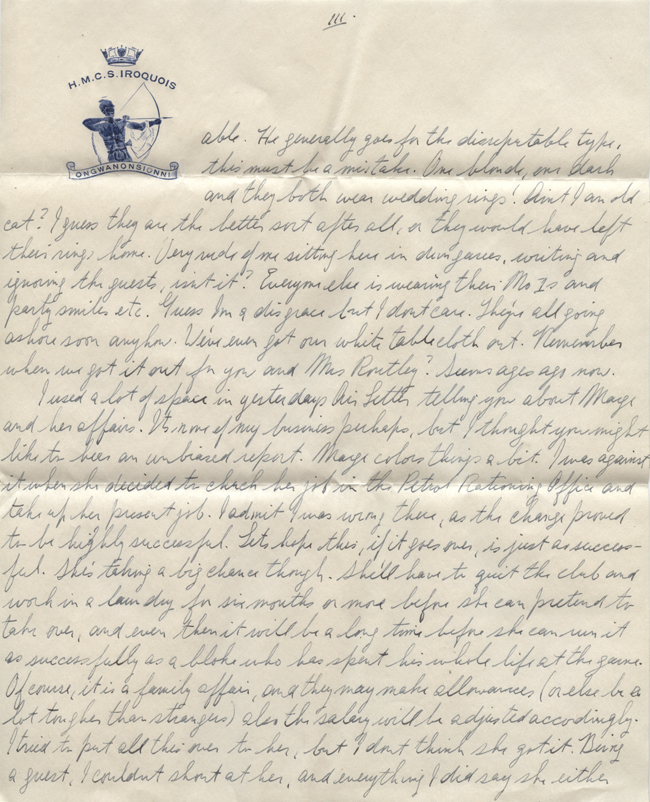 III.
H.M.C.S. IROQUOIS
ONGWANONSIONNI
able. He generally goes for the disreputable type,
this must be a mistake. One blonde, one dark
and they both wear wedding rings! Ain't I an old
cat? I guess they are the better sort after all, or they would have left
their rings home. Very rude of me sitting here in dungarees, writing and
ignoring the guests, isn't it? Everyone else is wearing their No 1s and
party smiles etc. Guess I'm a disgrace but I dont care. They're all going
ashore soon anyhow. We've even got our white tablecloth out. Remember
when we got it out for you and Mrs Routley? Seems ages ago now.
I used a lot of space in yesterdays Air Letter telling you about Marge
and her affairs. It's none of my business perhaps, but I thought you might
like to hear an unbiased report. Marge colors things a bit. I was against
it when she decided to chuck her job in the Petrol Rationing Office and
take up her present job. I admit I was wrong there, as the change proved
to be highly successful. Lets hope this, if it goes over, is just as success-
ful. She's taking a big chance though. She'll have to quit the club and
work in a laundry for six months or more before she can pretend to
take over, and even then it will be a long time before she can run it
as successfully as a bloke who has spent his whole life at the game.
Of course, it is a family affair, and they may make allowances (or else be a
lot tougher than strangers) also the salary will be adjusted accordingly.
I tried to put all this over to her, but I dont think she got it. Being
a guest, I couldn't shout at her, and everything I did say she either